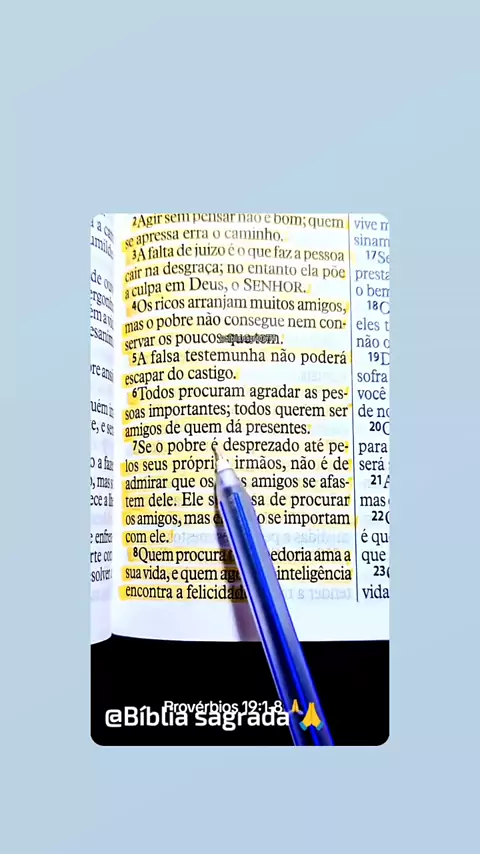 2Agir sem pensar não é bom; quem
se apressa erra o caminho.
3A falta de juízo é o que faz a pessoa
cair na desgraça; no entanto ela põe
a culpa em Deus, o SENHOR.
4Os ricos arranjam muitos amigos,
mas o pobre não consegue nem con-
servar os poucos que tem.
5A falsa testemunha não poderá
escapar do castigo.
6Todos procuram agradar as pes-
soas importantes; todos querem ser
amigos de quem dá presentes.
7Se o pobre é desprezado até pe-
los seus próprios irmãos, não é de
admirar que os amigos se afas-
tem dele. Ele sa de procurar
os amigos, mas o se importam
com ele.
8Quem procura edoria ama a
sua vida, e quem age inteligência
encontra a felicidad
vive m
sinam
17Se
presta
o bem
18C
eles t
não o
19D
sofra
você
de no
20C
para
será
21A
mas
22C
é qu
que
23C
vida
Provérbios 19:1-8 🙏
@Bíblia sagrada 🙏